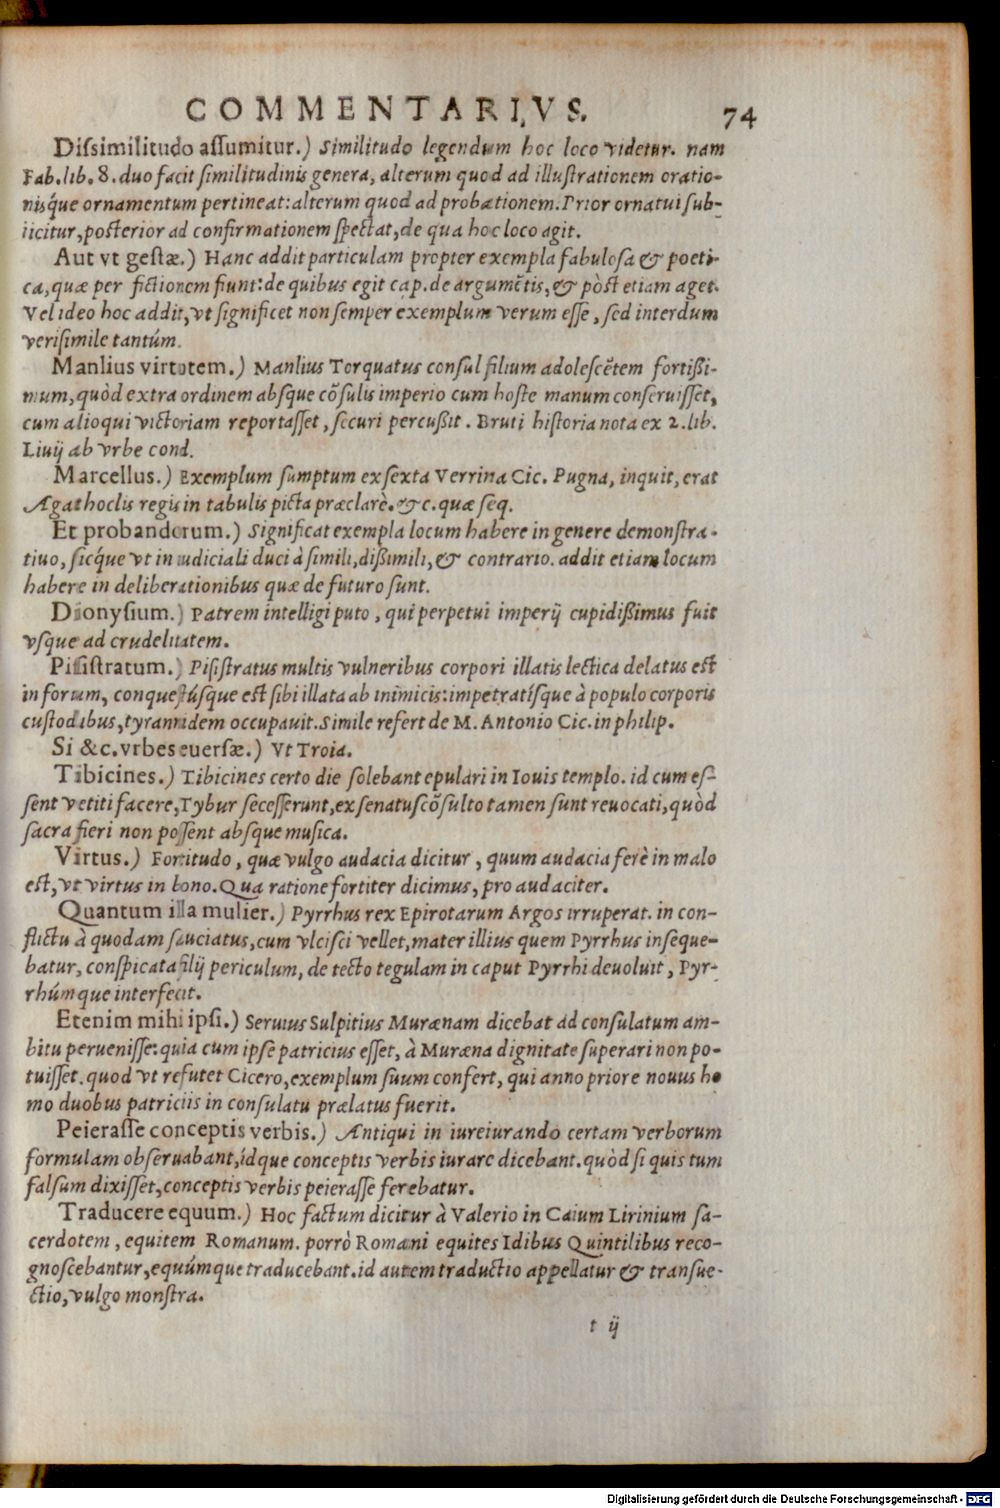 COMMENTARIVS. 74
Dissimilitudo assumitur.) Similitudo legendum hoc loco videtur. nam
Fab. lib. 8. duo facit similitudinis genera, alterum quod ad illustrationem oratio-
nisq́ue ornamentum pertineat: alterum quod ad probationem. Prior ornatui sub-
iicitur, posterior ad confirmationem spectat, de qua hoc loco agit.
Aut vt gestæ.) Hanc addit particulam propter exempla fabulosa & poeti-
ca, quæ per fictionem fiunt: de quibus egit cap. de argumẽtis, & pòst etiam aget.
Vel ideo hoc addit, vt significet non semper exemplum verum esse, sed interdum
verisimile tantúm.
Manlius virtutem.) Manlius Torquatus consul filium adolescẽtem fortißi-
mum, quòd extra ordinem absque cõsulis imperio cum hoste manum conseruisset,
cum alioqui victoriam reportasset, securi percußit. Bruti historia nota ex 2. lib.
Liuij ab vrbe cond.
Marcellus.) Exemplum sumptum ex sexta Verrina Cic. Pugna, inquit, erat
Agathoclis regis in tabulis picta præclarè. &c. quæ seq.
Et probandorum.) Significat exempla locum habere in genere demonstra-
tiuo, sicq́ue vt in iudiciali duci à simili, dißimili, & contrario. addit etiam locum
habere in deliberationibus quæ de futuro sunt.
Dionysium.) Patrem intelligi puto, qui perpetui imperij cupidißimus fuit
vsque ad crudelitatem.
Pisistratum.) Pisistratus multis vulneribus corpori illatis lectica delatus est
in forum, conquestúsque est sibi illata ab inimicis: impetratísque à populo corporis
custodibus, tyrannidem occupauit. Simile refert de M. Antonio Cic. in philip.
Si &c. vrbes euersæ.) Vt Troia.
Tibicines.) Tibicines certo die solebant epulari in Iouis templo. id cum es-
sent vetiti facere, Tybur secesserunt, ex senatuscõsulto tamen sunt reuocati, quòd
sacra fieri non possent absque musica.
Virtus.) Fortitudo, quæ vulgo audacia dicitur, quum audacia ferè in malo
est, vt virtus in bono. Qua ratione fortiter dicimus, pro audaciter.
Quantum illa mulier.) Pyrrhus rex Epirotarum Argos irruperat. in con-
flictu à quodam sauciatus, cum vlcisci vellet, mater illius quem Pyrrhus inseque-
batur, conspicata filij periculum, de tecto tegulam in caput Pyrrhi deuoluit, Pyr-
rhúmque interfecit.
Etenim mihi ipsi.) Seruius Sulpitius Murænam dicebat ad consulatum am-
bitu peruenisse: quia cum ipse patricius esset, à Muræna dignitate superari non po-
tuisset. quod vt refutet Cicero, exemplum suum confert, qui anno priore nouus ho
mo duobus patriciis in consulatu prælatus fuerit.
Peierasse conceptis verbis.) Antiqui in iureiurando certam verborum
formulam obseruabant, ídque conceptis verbis iurare dicebant. quòd si quis tum
falsum dixisset, conceptis verbis peierasse ferebatur.
Traducere equum.) Hoc factum dicitur à Valerio in Caium Lirinium sa-
cerdotem, equitem Romanum. porrò Romani equites Idibus Quintilibus reco-
gnoscebantur, equúmque traducebant. id autem traductio appellatur & transue-
ctio, vulgo monstra.
t ij
Digitalisierung gefördert durch die Deutsche Forschungsgemeinschaft - DFG